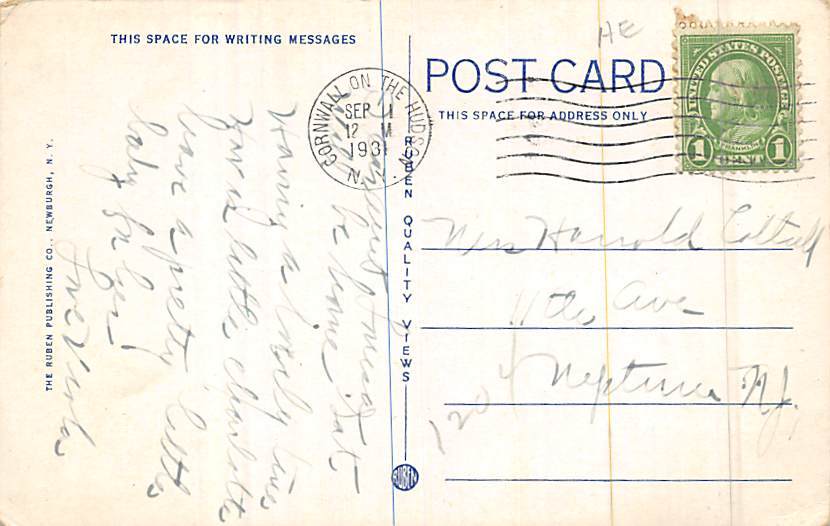 THIS SPACE FOR WRITING MESSAGES
HE
POST CARD
THIS SPACE FOR ADDRESS ONLY
UNITED STATES POSTAGE
FRANKLIN
1 CENT 1
CORNWALL ON THE HUDSON
SEP 1
12 M
1931
N.Y.
be home Sat.
Having a lovely time
for a little, Charlotte
have a pretty little
baby for her!
Love Viola
Mrs Harrold
11th Ave
1204
Neptune N.J.
RUBEN QUALITY VIEWS
RUBEN
THE RUBEN PUBLISHING CO., NEWBURGH, N. Y.